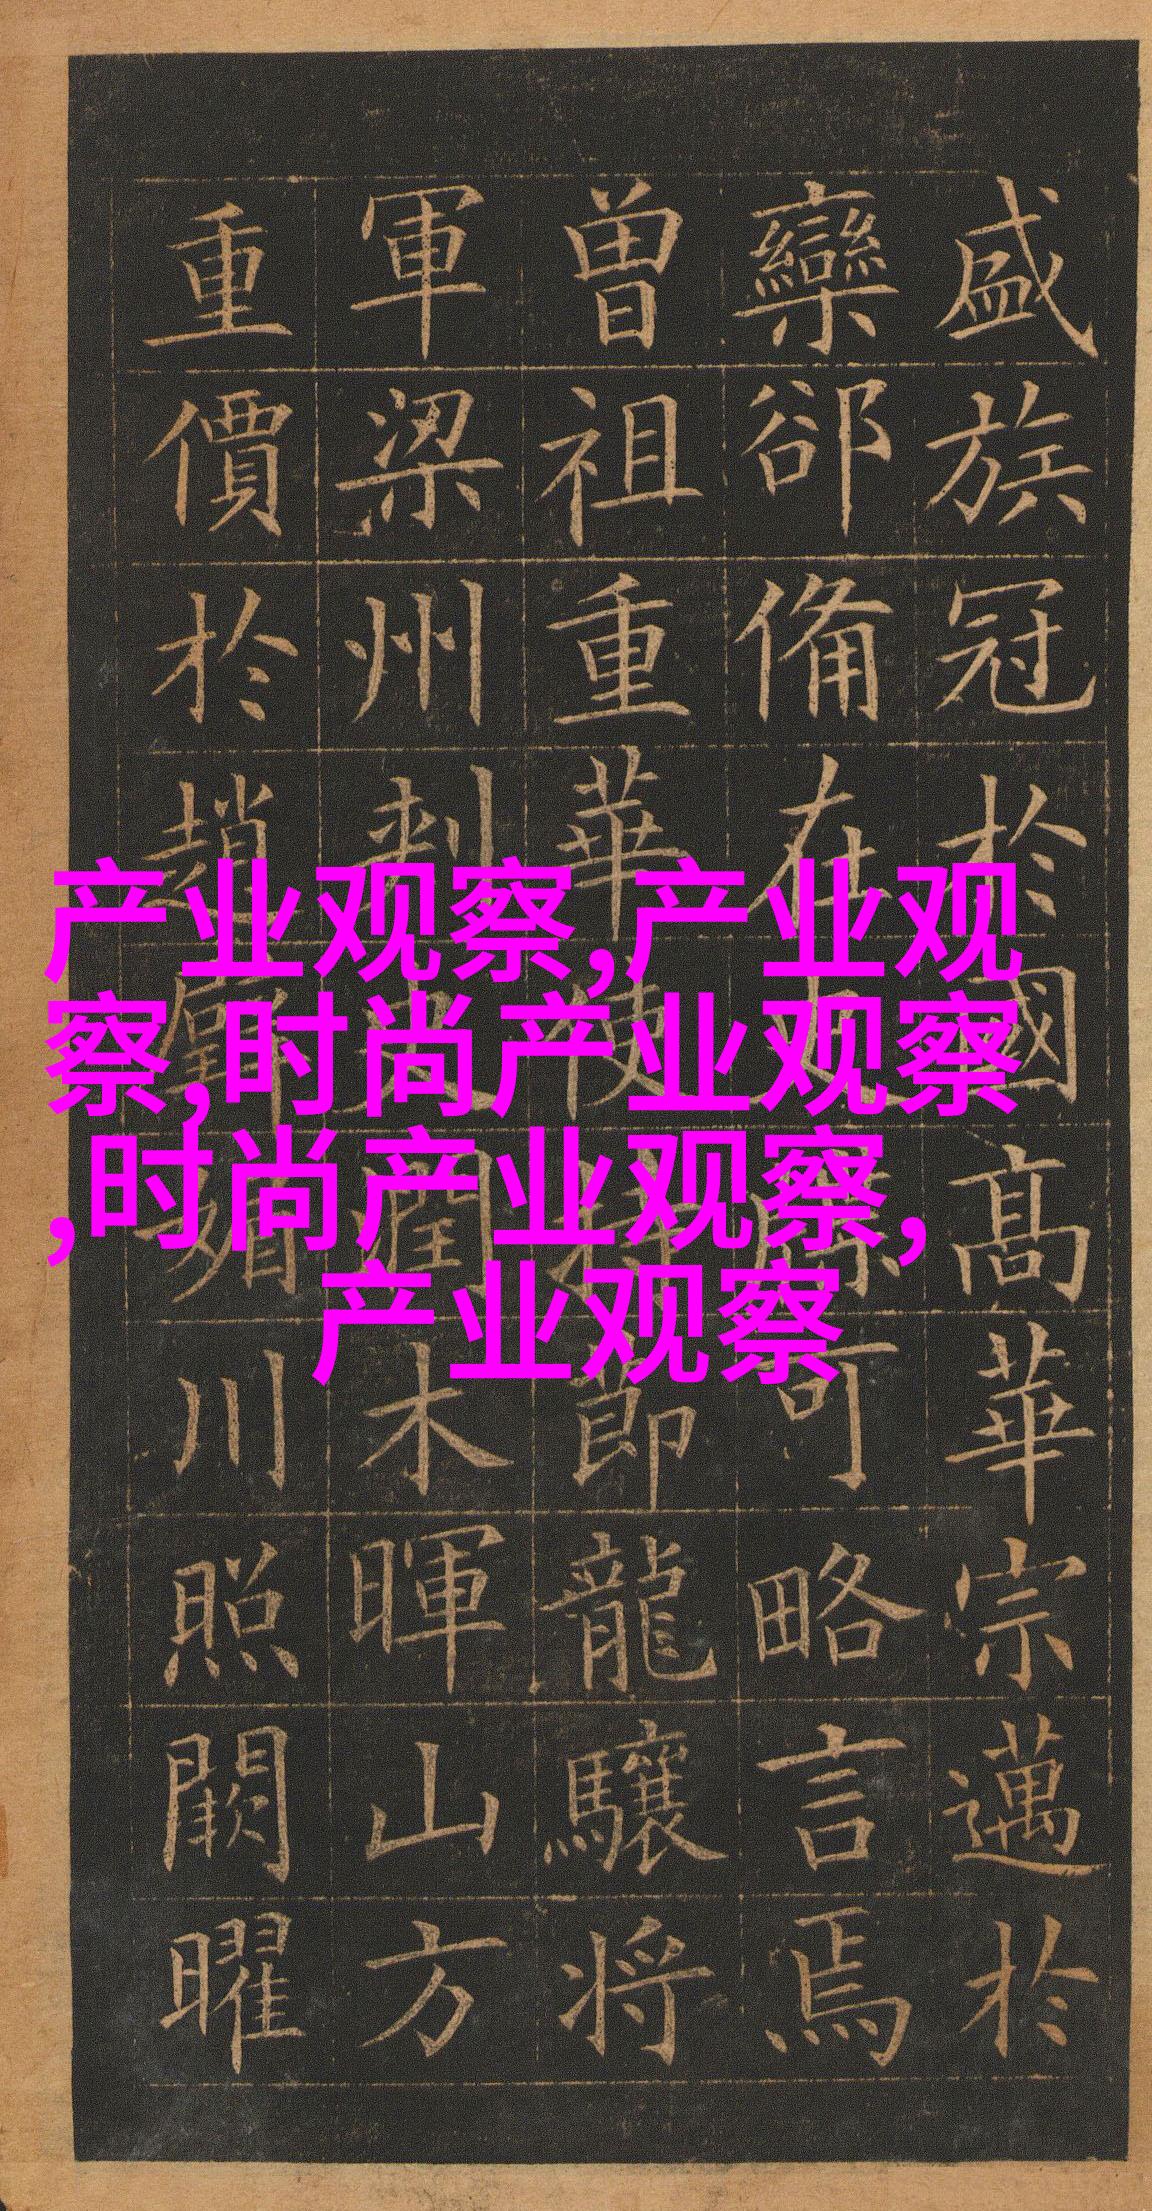 盛族冠於國高華宗邁於
欒郤備在可略言焉
曾祖重華使持節龍驤将
軍梁州刺史潤木暉山方
重價於趙媚川照闕曜
产业观察,产业观
察,时尚产业观察
,时尚产业观察,
产业观察